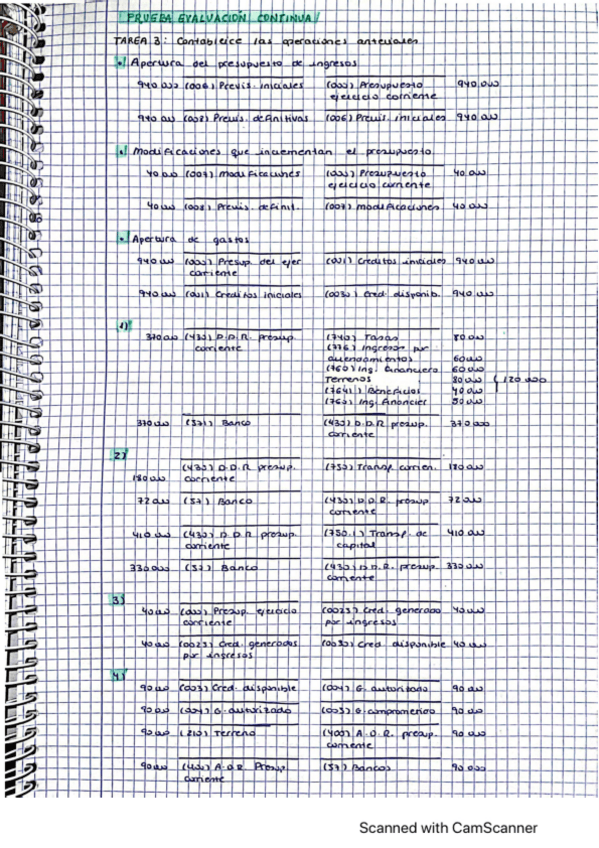 PRUEBA EVALUACIÓN CONTINUA
TAREA 3: Contabilice las operaciones anteriores
• Apertura del presupuesto de ingresos
940 000 (006) Previs. iniciales (000) Presupuesto 940 000
ejercicio corriente
940 000 (008) Previs. definitivas (006) Previs. iniciales 940 000
• Modificaciones que incrementan el presupuesto
40 000 (007) modificaciones (000) Presupuesto 40 000
ejercicio corriente
40 000 (008) Previs. definit. (007) modificaciones 40 000
• Apertura de gastos
940 000 (000) Presup. del ejer (001) Creditos iniciales 940 000
corriente
940 000 Creditos iniciales (0030) Cred. disponib. 940 000
1)
370 000 (430) D.D.R. presup. (740) Tasas
corriente (776) Ingresos por
arrendamientos 60 000
(760) Ing. financiero 60 000
Terrenos 80 000 120 000
Beneficios 40 000
Ing. financier 50 000
370 000 (571) Banco (430) D.D.R presup. 370 000
corriente
2)
(430) D.D.R presup. (750) Transf. corrien. 180 000
180 000 corriente
72 000 (57) Banco (430) D.D.R. presup 72 000
corriente
410 000 (430) D.D.R presup. (750.1) Transf. de 410 000
corriente capital
330 000 Banco (430) D.D.R. presup. 330 000
corriente
3)
40 000 (000) Presup. ejercicio (0023) Cred. generado 40 000
corriente por ingresos
40 000 (0023) Cred. generados (0030) Cred. disponible 40 000
por ingresos
4)
90 000 (003) Cred. disponible (004) G. autorizado 90 000
90 000 (004) G. autorizado (005) G. comprometido 90 000
90 000 (210) Terreno (400) A.O.R. presup. 90 000
corriente
90 000 (400) A.O.R. Presup (57) Bancos 90 000
corriente
Scanned with CamScanner